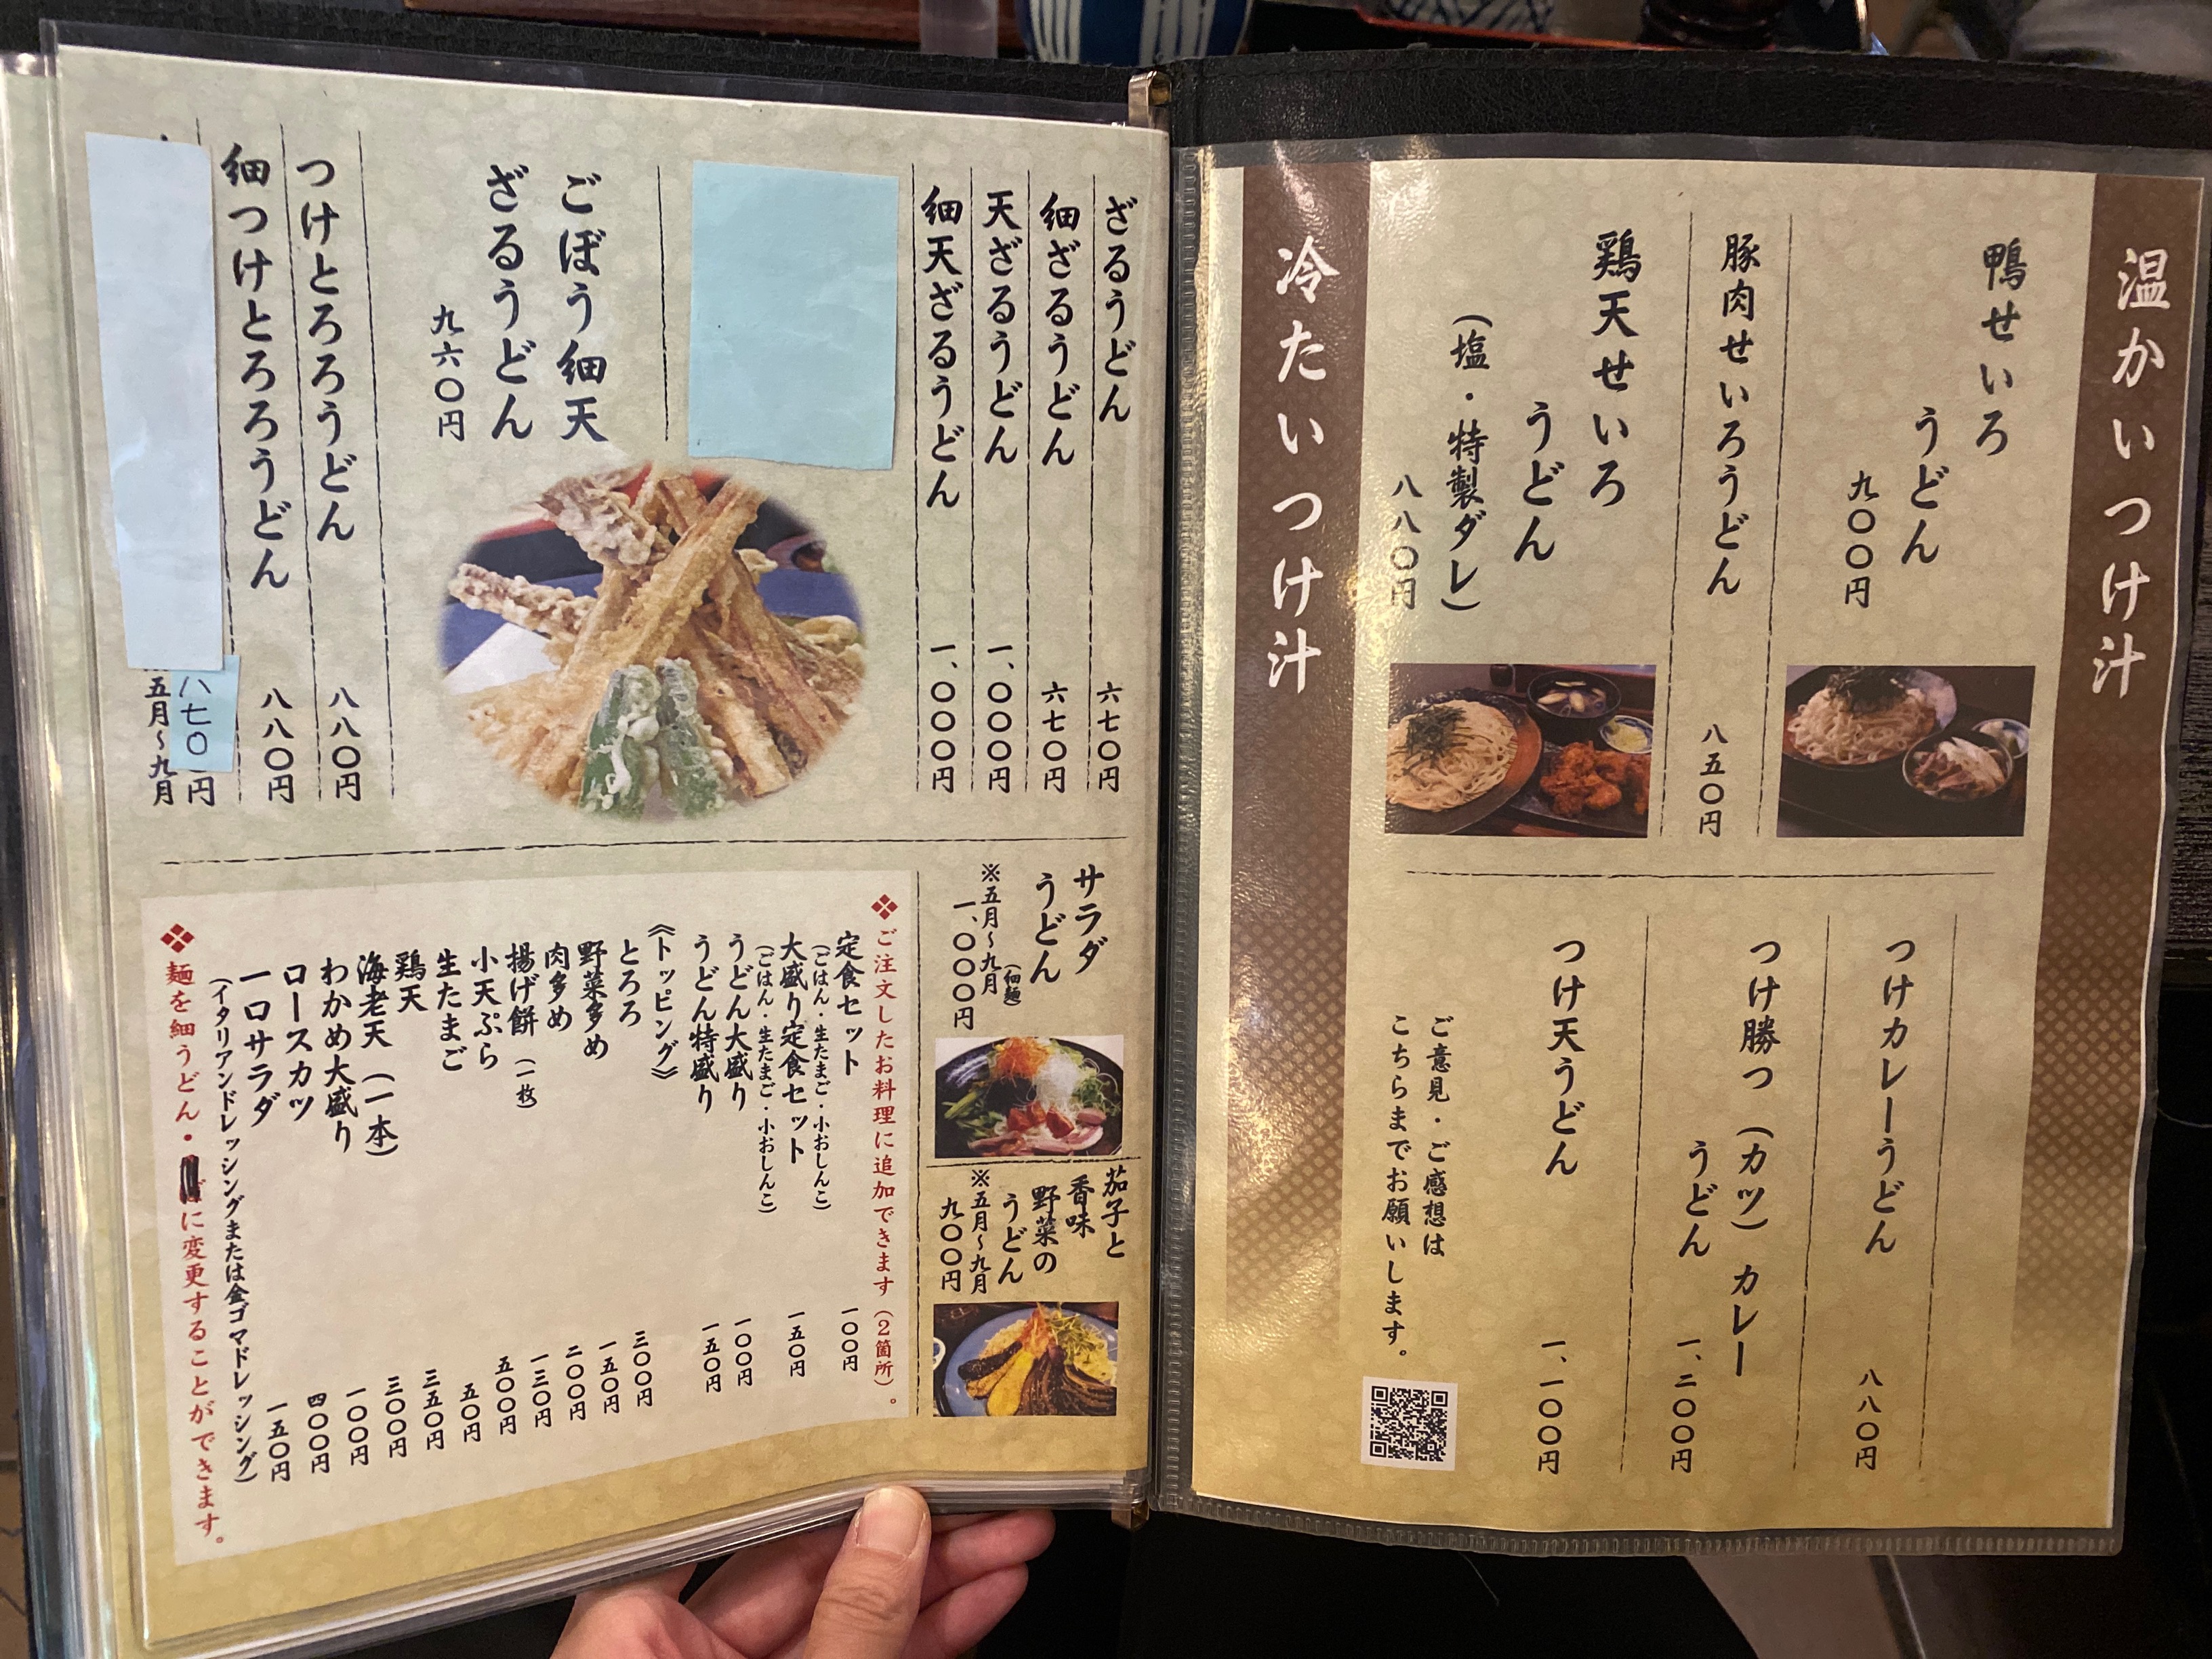 温かいつけ汁
鴨せいろ
うどん
九〇〇円
豚肉せいろうどん
八五〇円
鶏天せいろ
うどん
(塩・特製ダレ)
八八〇円
つけカレーうどん
八八〇円
つけ勝つ(カツ)カレー
うどん
一、二〇〇円
つけ天うどん
一、一〇〇円
ご意見・ご感想は
こちらまでお願いします。
冷たいつけ汁
ざるうどん
六七〇円
細ざるうどん
六七〇円
天ざるうどん
一、〇〇〇円
細天ざるうどん
一、〇〇〇円
ごぼう細天
ざるうどん
九六〇円
つけとろろうどん
八八〇円
細つけとろろうどん
八八〇円
八七〇円
五月~九月
サラダ
うどん
(細麺)
※五月~九月
一、〇〇〇円
茄子と
香味
野菜の
うどん
※五月~九月
九〇〇円
❖ご注文したお料理に追加できます(2箇所)。
定食セット 一〇〇円
(ごはん・生たまご・小おしんこ)
大盛り定食セット 一五〇円
(ごはん・生たまご・小おしんこ)
うどん大盛り 一〇〇円
うどん特盛り 一五〇円
《トッピング》
とろろ 三〇〇円
野菜多め 一五〇円
肉多め 二〇〇円
揚げ餅(一枚) 一三〇円
小天ぷら 五〇〇円
生たまご 五〇円
鶏天 三五〇円
海老天(一本) 三〇〇円
わかめ大盛り 一〇〇円
ロースカツ 四〇〇円
一口サラダ 一五〇円
(イタリアンドレッシングまたは金ゴマドレッシング)
❖麺を細うどん・に変更することができます。